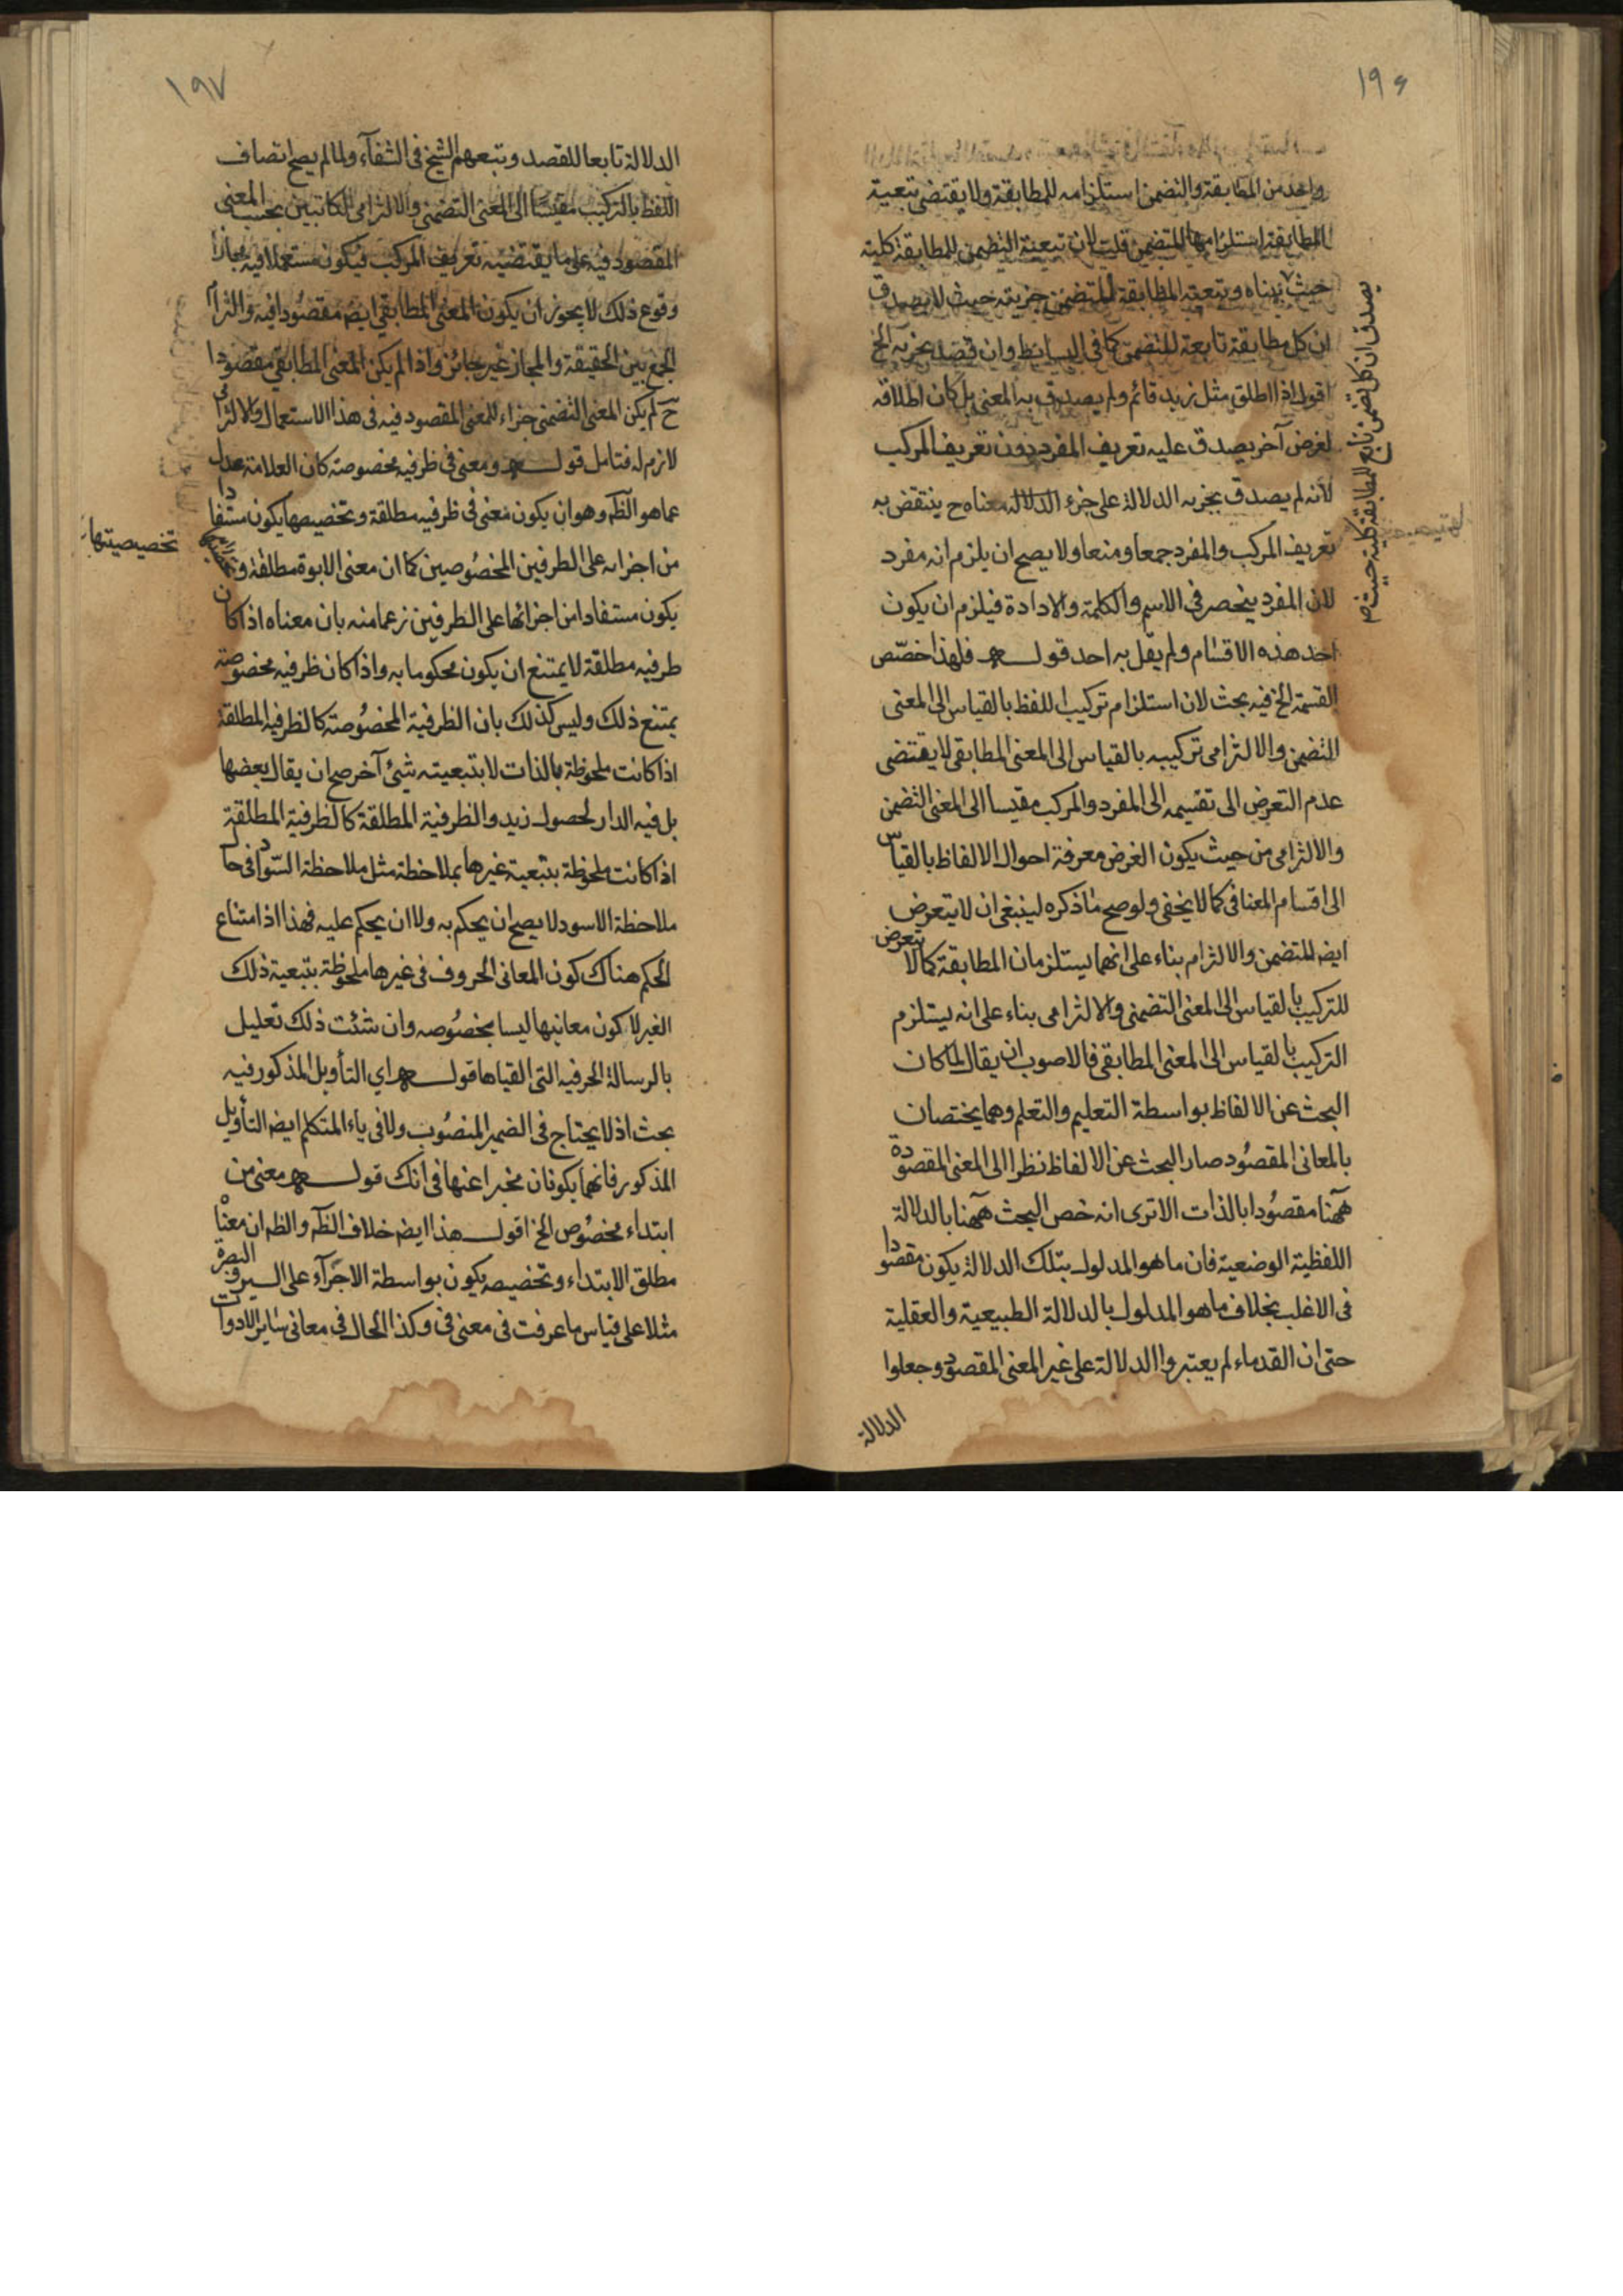 ١٩۶
واحد من المطابقة والتضمن استلزامه للمطابقة ولا يقتضى تبعية
المطابقة استلزامها للتضمن قلت لان تبعية التضمن للمطابقة كلية
حيث بيناه وتبعية المطابقة للتضمن جزيته حيث لا يصدق
ان كل مطابقة تابعة للتضمن كما فى البسائط وان قصد بجزيه الخ
اقول اذا اطلق مثل زيد قائم ولم يصدق به المعنى بل كان اطلاقه
لغرض آخر يصدق عليه تعريف المفرد دون تعريف المركب
لانه لم يصدق بجزيه الدلالة على جزء معناه ح ينتقض به
تعريف المركب والمفرد جمعا ومنعا ولا يصح ان يلزم انه مفرد
لان المفرد ينحصر فى الاسم والكلمة والادادة فيلزم ان يكون
احد هذه الاقسام ولم يقل به احد قوله فلهذا خصّص
القسمة الخ فيه بحث لان استلزام تركيب اللفظ بالقياس الى المعنى
التضمن والالتزامى تركيبه بالقياس الى المعنى المطابقى لا يقتضى
عدم التعرض الى تقسيمه الى المفرد والمركب مقيسا الى المعنى التضمن
والالتزامى من حيث يكون الغرض معرفة احوال الالفاظ بالقياس
الى اقسام المعنا فى كما لا يخفى ولو صح ما ذكره لينبغى ان لا يتعرض
ايضا للتضمن والالتزام بناء على انهما يستلزمان المطابقة كما لا يتعرض
للتركيب بالقياس الى المعنى التضمنى والالتزامى بناء على انه يستلزم
التركيب بالقياس الى المعنى المطابقى فالاصوب ان يقال لما كان
البحث عن الالفاظ بواسطة التعليم والتعلم وهما يختصان
بالمعانى المقصود صار البحث عن الالفاظ نظرا الى المعنى المقصودة
ههنا مقصودا بالذات الا ترى انه خص البحث ههنا بالدلالة
اللفظية الوضعية فان ما هو المدلول بتلك الدلالة يكون مقصودا
فى الاغلب بخلاف ما هو المدلول بالدلالة الطبيعية والعقلية
حتى ان القدماء لم يعتبروا الدلالة على غير المعنى المقصود وجعلوا
الدلالة
يصدق ان كل تضمن تابع للمطابقة كلية حيث
١٩٧
الدلالة تابعا للقصد وتبعهم الشيخ فى الشفآء ولما لم يصح اتصاف
اللفظ بالتركيب مقيسًا الى المعنى التضمنى والالتزامى الكائنين بحسب المعنى
المقصود فيه على ما يقتضيه تعريف المركب فيكون مستعملا فيه مجازا
وقوع ذلك لا يجوز ان يكون المعنى المطابقى ايضا مقصودا فيه والتزام
الجمع بين الحقيقة والمجاز غير جائز واذا لم يكن المعنى المطابقى مقصودا
ح لم يكن المعنى التضمنى جزاء للمعنى المقصود فيه فى هذا الاستعمال والالتزامى
لازم له فتامل قوله ومعنى فى ظرفيه مخصوصة كان العلامة عدل
عما هو الظ وهو ان يكون معنى فى ظرفيه مطلقة وتخصيصها يكون مستفادا
من اجزائه على الطرفين المخصوصين كما ان معنى الابوة مطلقة و
يكون مستفادا من اجزائها على الطرفين زعما منه بان معناه اذا كان
ظرفيه مطلقة لا يمتنع ان يكون محكوما به واذا كان ظرفيه مخصوصة
يمتنع ذلك وليس كذلك بان الظرفية المخصوصة كالظرفيه المطلقة
اذا كانت ملحوظة بالذات لا بتبعيته شئ آخر صح ان يقال بعضها
بل فيه الدار لحصول زيد والظرفية المطلقة كالظرفية المطلقة
اذا كانت ملحوظة بتبعية غيرها بملاحظة مثل ملاحظة السّواد فى حال
ملاحظة الاسود لا يصح ان يحكم به ولا ان يحكم عليه فهذا اذا متناع
الحكم هناك كون المعانى الحروف فى غيرها ملحوظة بتبعية ذلك
الغير لا كون معانيها ليسا بخصوصه وان شئت ذلك تعليل
بالرسالة الحرفيه التى القياها قوله اي التأويل المذكور فيه
بحث اذ لا يحتاج فى الضمير المنصوب ولا فى ياء المتكلم ايضا التأويل
المذكور فانهما يكونان مخبرا عنها فى انك قوله معنى من
ابتداء مخصوص الخ اقول هذا ايضا خلاف الظ والظ ان معناه
مطلق الابتداء وتخصيصه يكون بواسطة الاجرآء على السير والبصرة
مثلا على قياس ما عرفت فى معنى فى وكذا الحال فى معانى سائر الادوات
تخصيصيتها